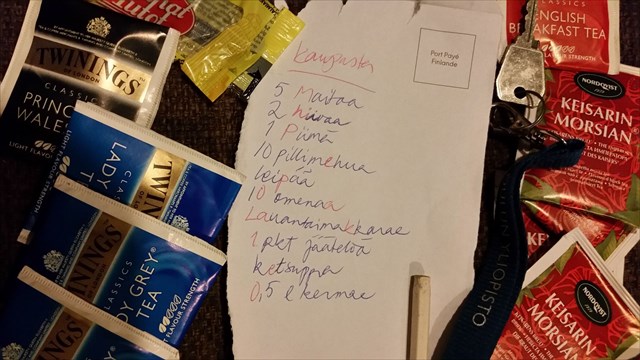 TWININGS
OF LONDON
CLASSICS
PRINC
WALE
LIGHT FLAVOUR
LADY
TWININGS
CLASSICS
DY GREY®
TEA
FLAVOUR STRENGTH
Port Payé
Finlande
kaupasta
5 Maitoa
2 hiivaa
1 Piimä
10 pillimehua
leipää
10 omenaa
Lauantaimakkaraa
1 pkt jäätelöä
ketsuppia
0,5 l kermaa
CLASSICS
ENGLISH
BREAKFAST TEA
FLAVOUR STRENGTH
NORDQVIST
KEISARIN
MORSIAN
YLIOPISTO
NORDQVIST
KEISARIN
MORSIAN